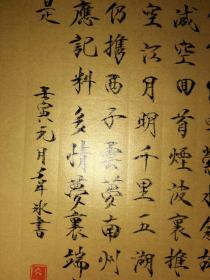 縈水念故
減空回首煙波裏推
空江月明千里五湖
仍攜西子雲夢南州
應記料多情夢裏端
是
壬寅元月冰書